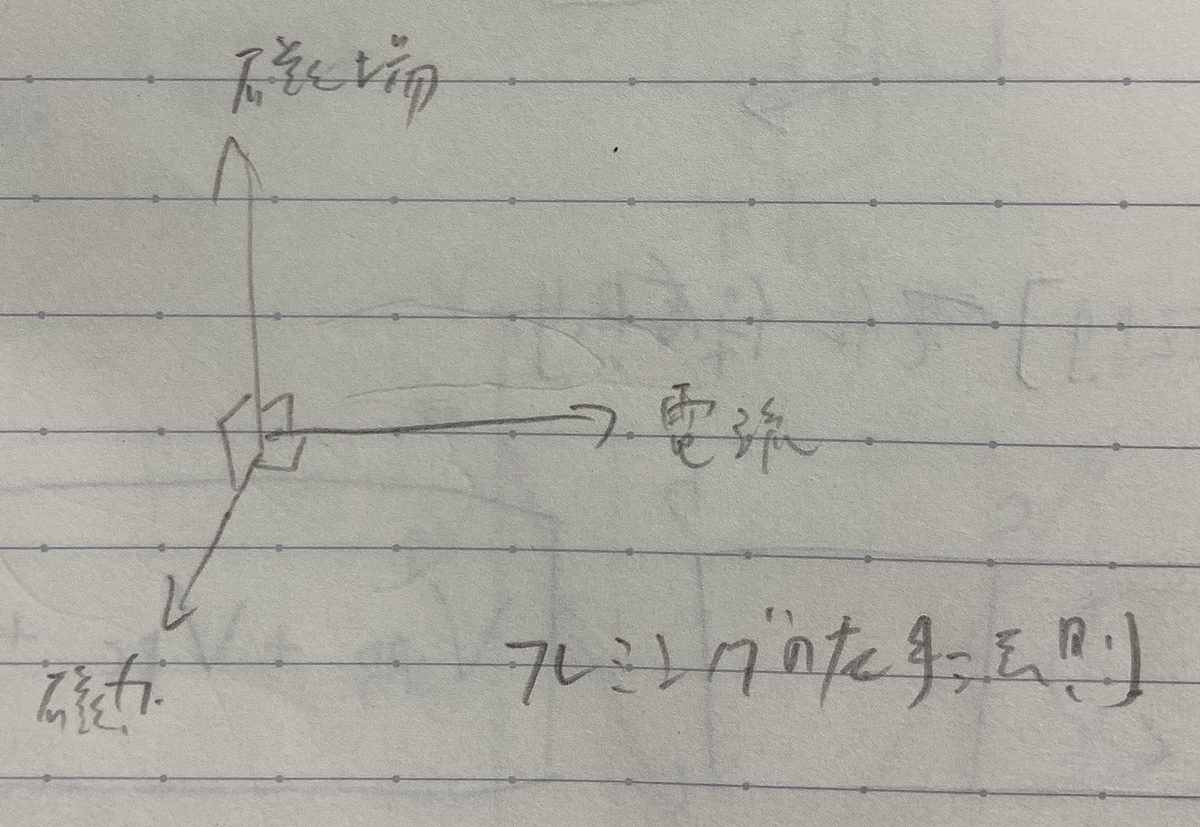 磁場
電流
磁力
フレミングの左手法則